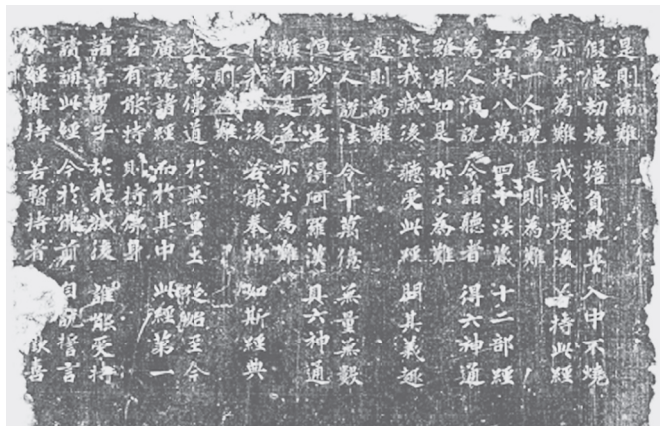 是則為難
假使劫燒 擔負乾草 入中不燒
亦未為難 我滅度後 若持此經
為一人說 是則為難
若持八萬 四千法藏 十二部經
為人演說 令諸聽者 得六神通
雖能如是 亦未為難
於我滅後 聽受此經 問其義趣
是則為難
若人說法 令千萬億 無量無數
恒沙眾生 得阿羅漢 具六神通
雖有是益 亦未為難
於我滅後 若能奉持 如斯經典
是則為難
我為佛道 於無量土 從始至今
廣說諸經 而於其中 此經第一
若有能持 則持佛身
諸善男子 於我滅後 誰能受持
讀誦此經 今於佛前 自說誓言
經難持 若暫持者 歡喜